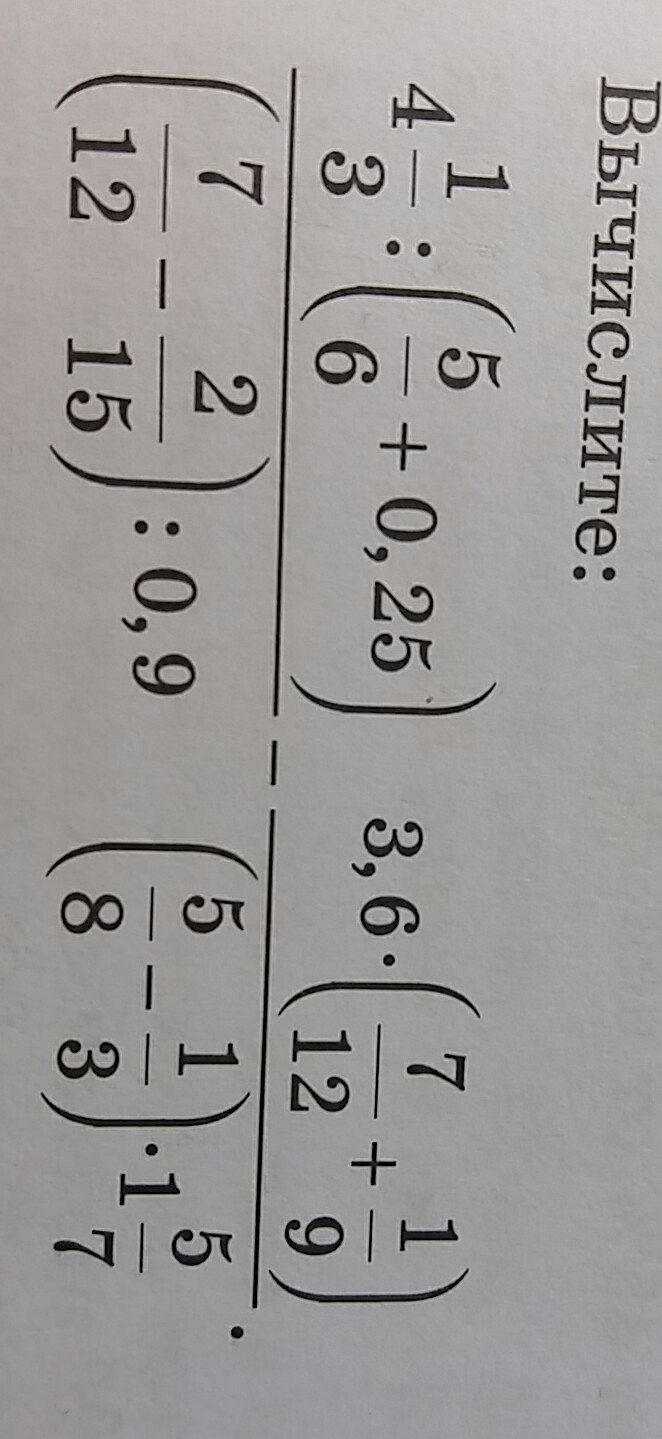 Вычислите:
4 1/3 : (5/6 + 0,25) / (7/12 − 2/15) : 0,9 − 3,6 · (7/12 + 1/9) / (5/8 − 1/3) · 1 5/7 .